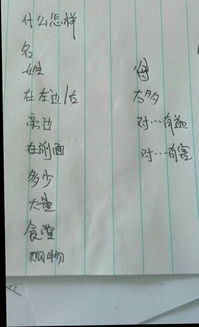 什么怎样
名
姓
在左边/右
旁边
在前面
多少
大量
食堂
植物
每
太多
对…有益
对…有害